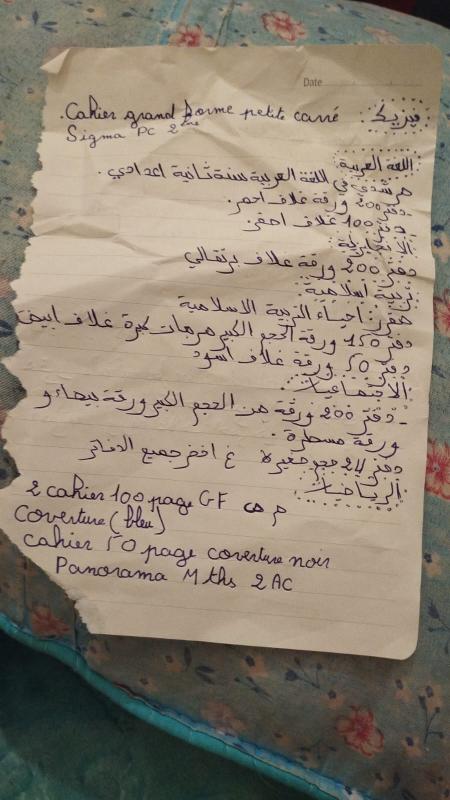 Date
فيزيك: Cahier grand forme petite carré.
Sigma PC 2ème
اللغة العربية
مرشدي في اللغة العربية سنة ثانية اعدادي.
- دفتر 200 ورقة غلاف احمر.
- دفتر 100 غلاف اصفر.
الانجليزية
دفتر 200 ورقة غلاف برتقالي
تربية اسلامية:
مقرر: احياء التربية الاسلامية
دفتر 150 ورقة الحجم الكبير مربعات كبيرة غلاف ابيض
دفتر 50 ورقة غلاف اسود
الاجتماعيات
- دفتر 200 ورقة من الحجم الكبير ورقة بيضاء و
ورقة مسطرة.
دفتر 24 حجم صغيرة غ اخضر جميع الدفاتر
الرياضيات
2 cahier 100 page GF
Coverture (bleu)
cahier 50 page coverture noir
Panorama M ths 2 AC